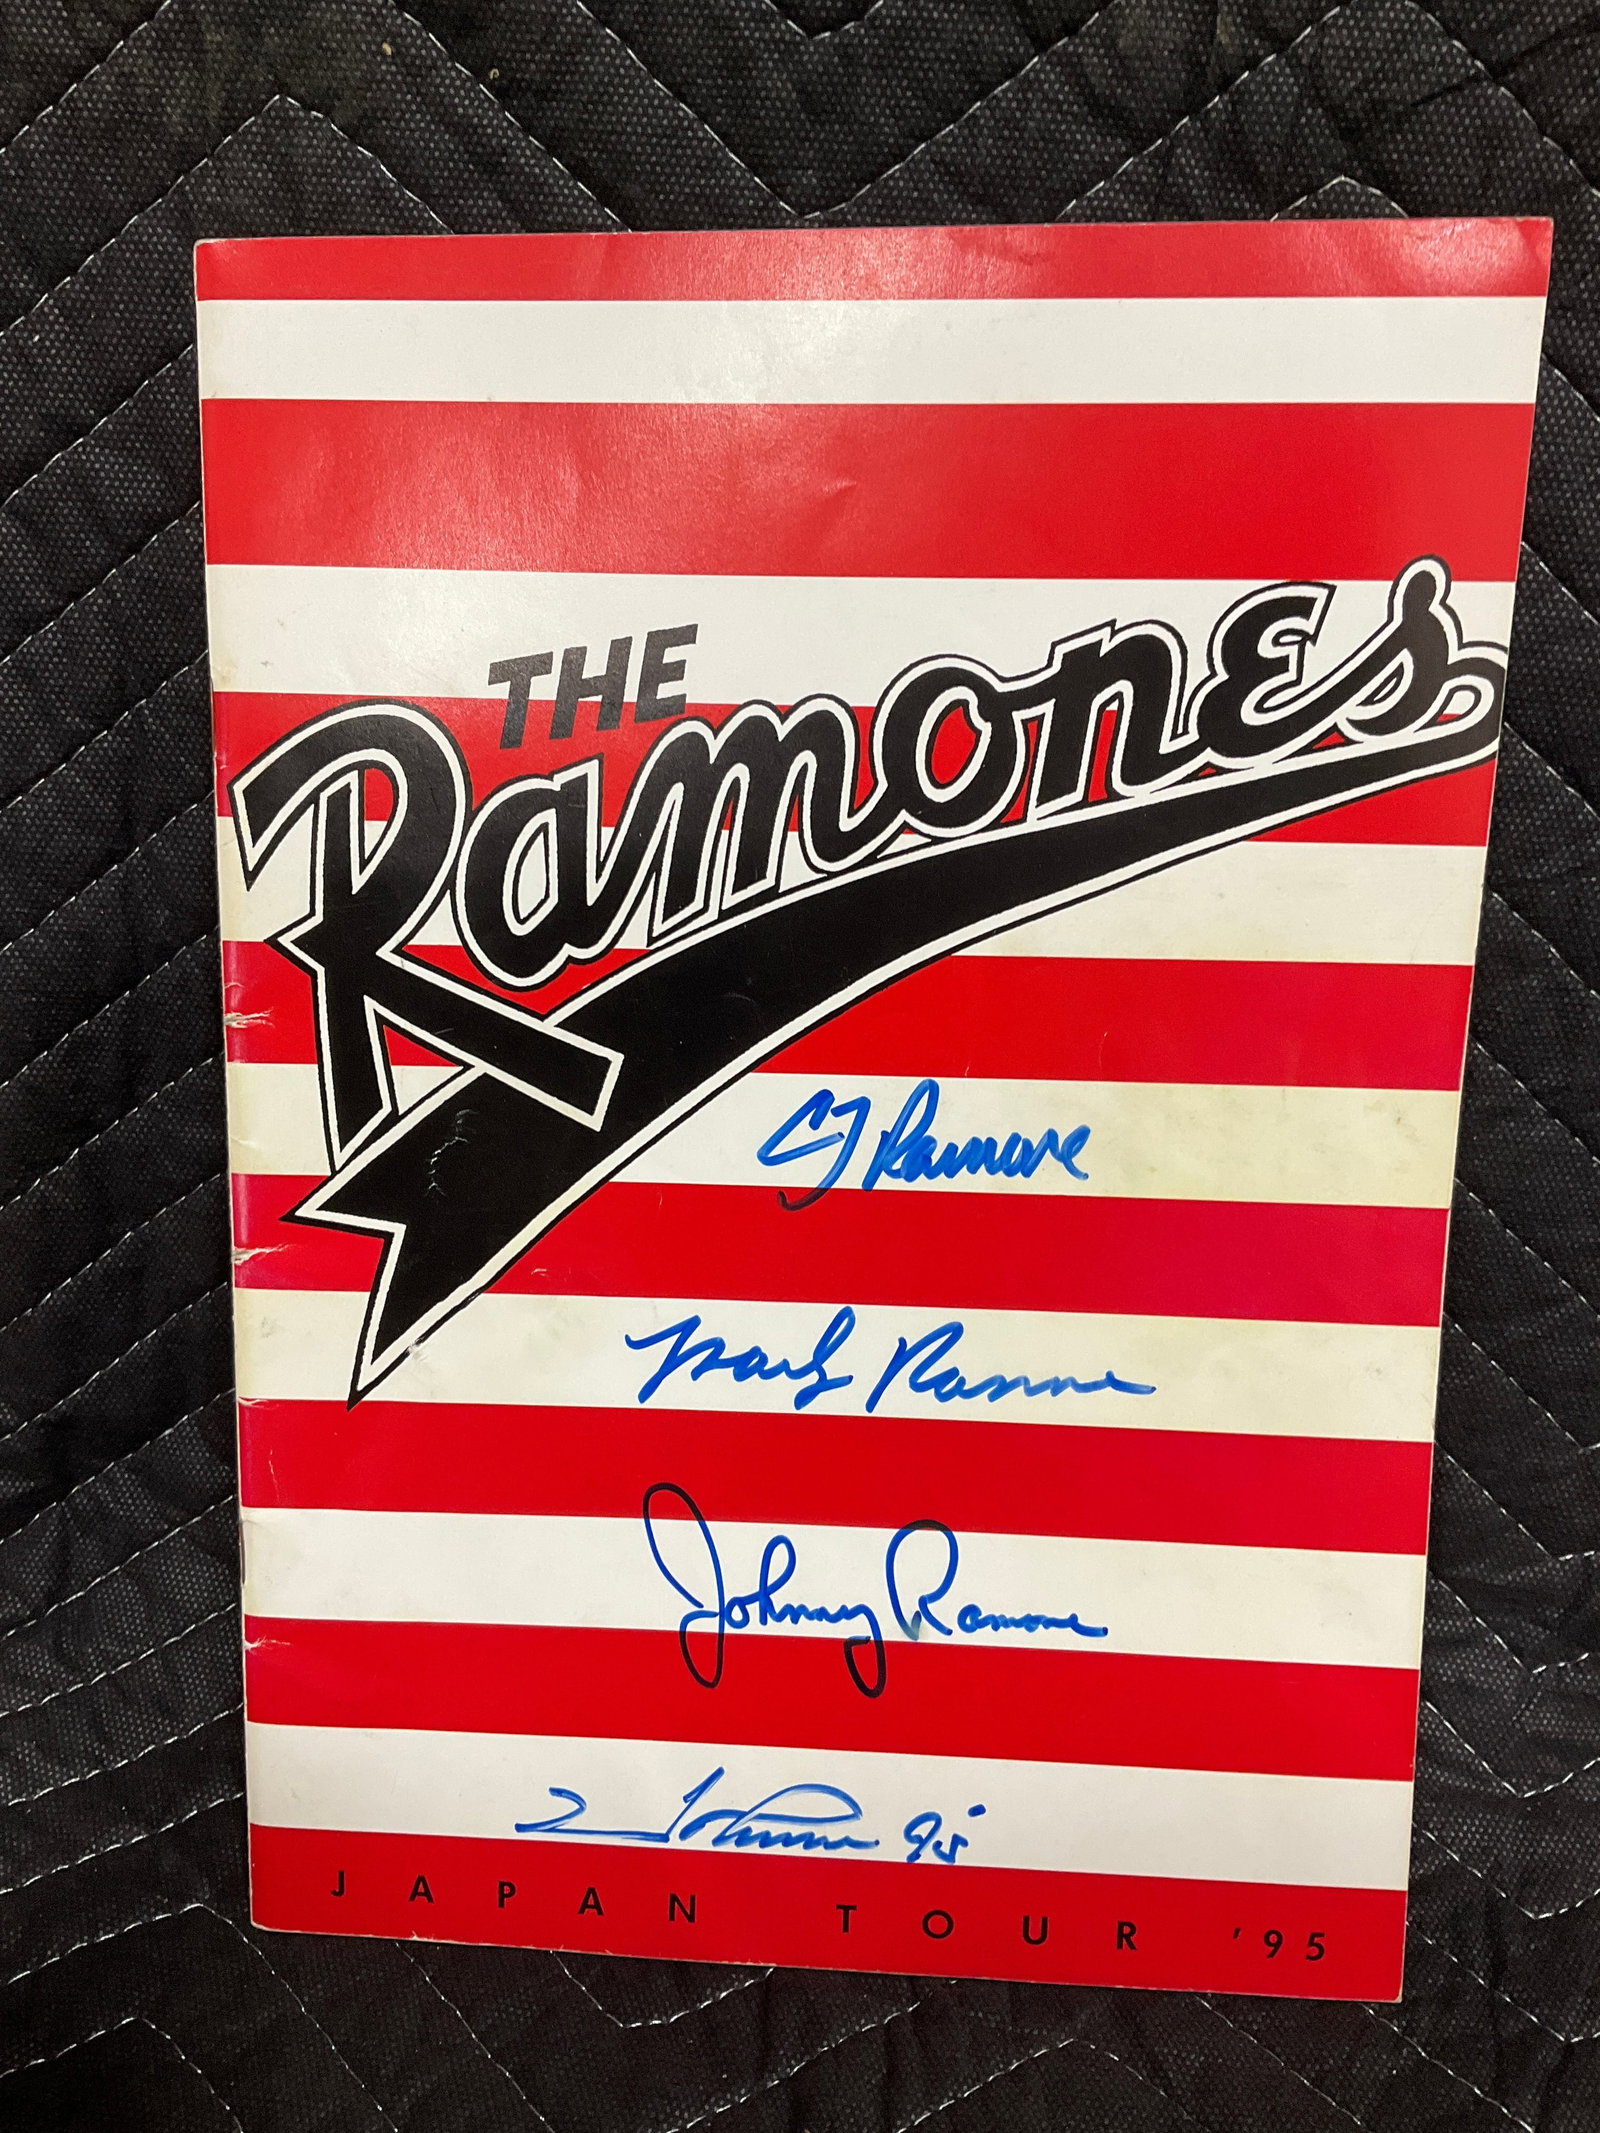 THE
Ramones
CJ Ramone
Mark Ramone
Johnny Ramone
95
JAPAN TOUR '95